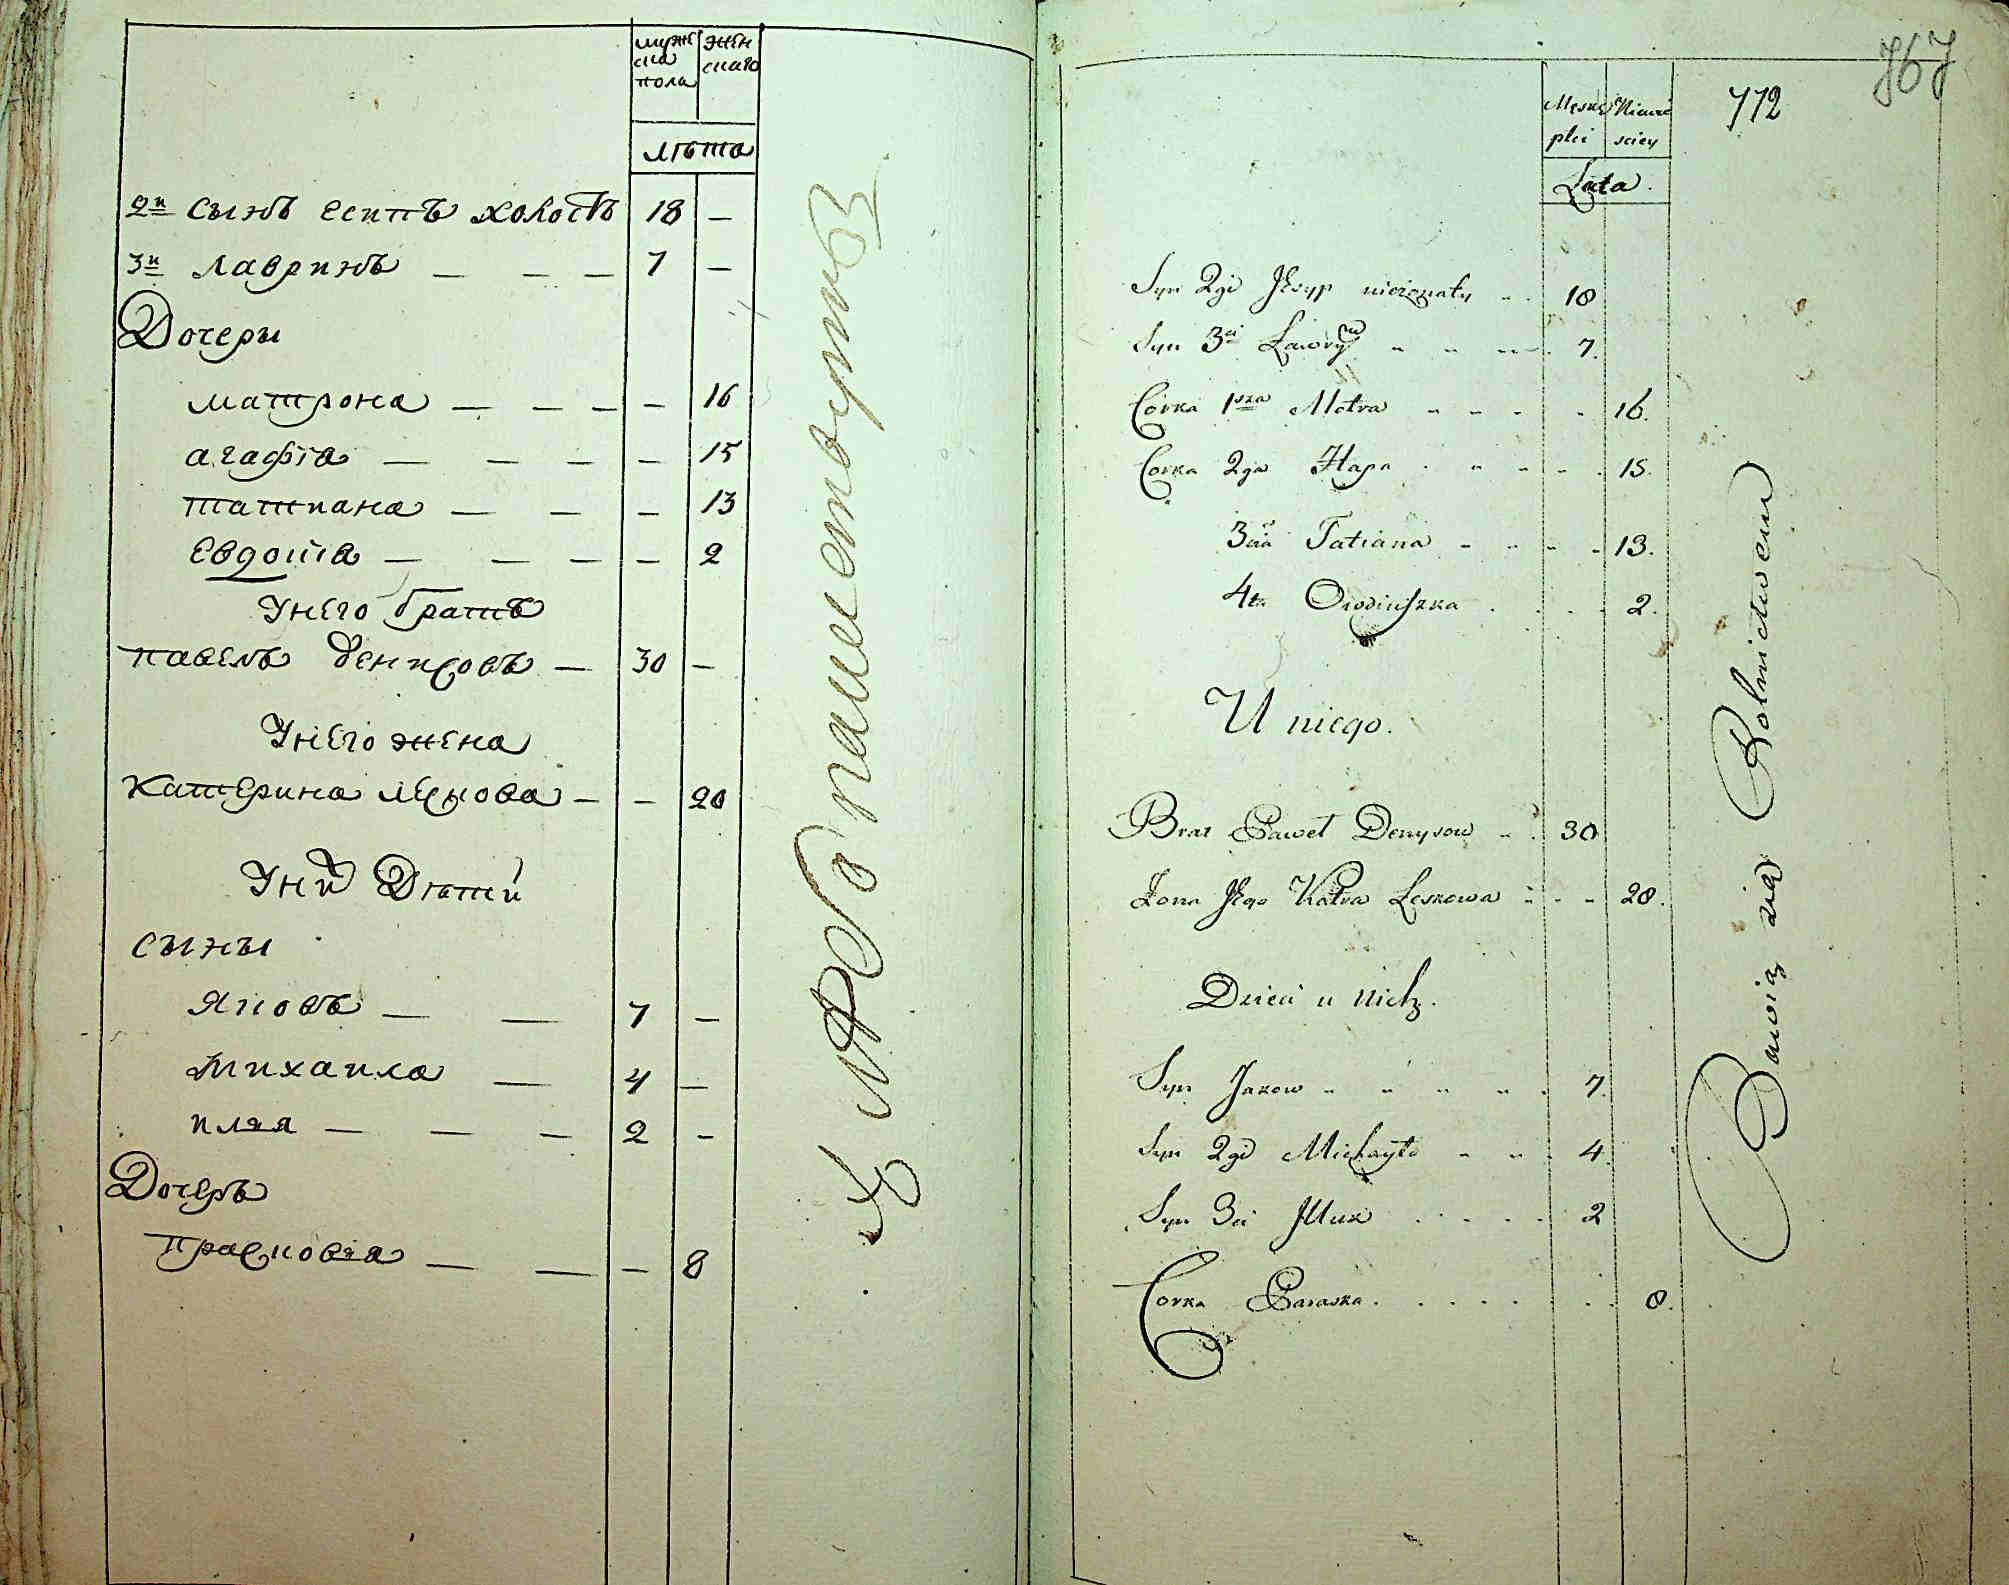 мужс женс
ска скаго
пола
Лѣта
2й сынъ Есипъ холостъ 18 —
3й Лавринъ — — — 7 —
Дочеры
Матрона — — — — 16
Агафія — — — — 15
Татиана — — — 13
Евдокія — — — — 2
У него братъ
Павелъ Денисовъ — 30 —
У него жена
Катерина Лескова — — 20
У ни Дѣтей
Сыны
Яковъ — — 7 —
Михаила — 4 —
Илля — — — 2 —
Дочерь
Прасковія — — — 8
767
772
Męskiey Niewie
płci sciey
Lata.
Syn 2gi Jósyp nieżonaty 18
Syn 3ci Ławryn 7.
Córka 1sza Motra 16.
Corka 2ga Hapa 15.
3cia Tatiana 13.
4ta 2.
U niego.
Brat Paweł Denysow 30
Żona Jego Katra Leskowa 20.
Dzieci u Nich.
Syn Jakow 7.
Syn 2gi Michayło 4.
Syn 3ci Illuk 2
Corka Paraska 8.
Bawią się Rolnictwem